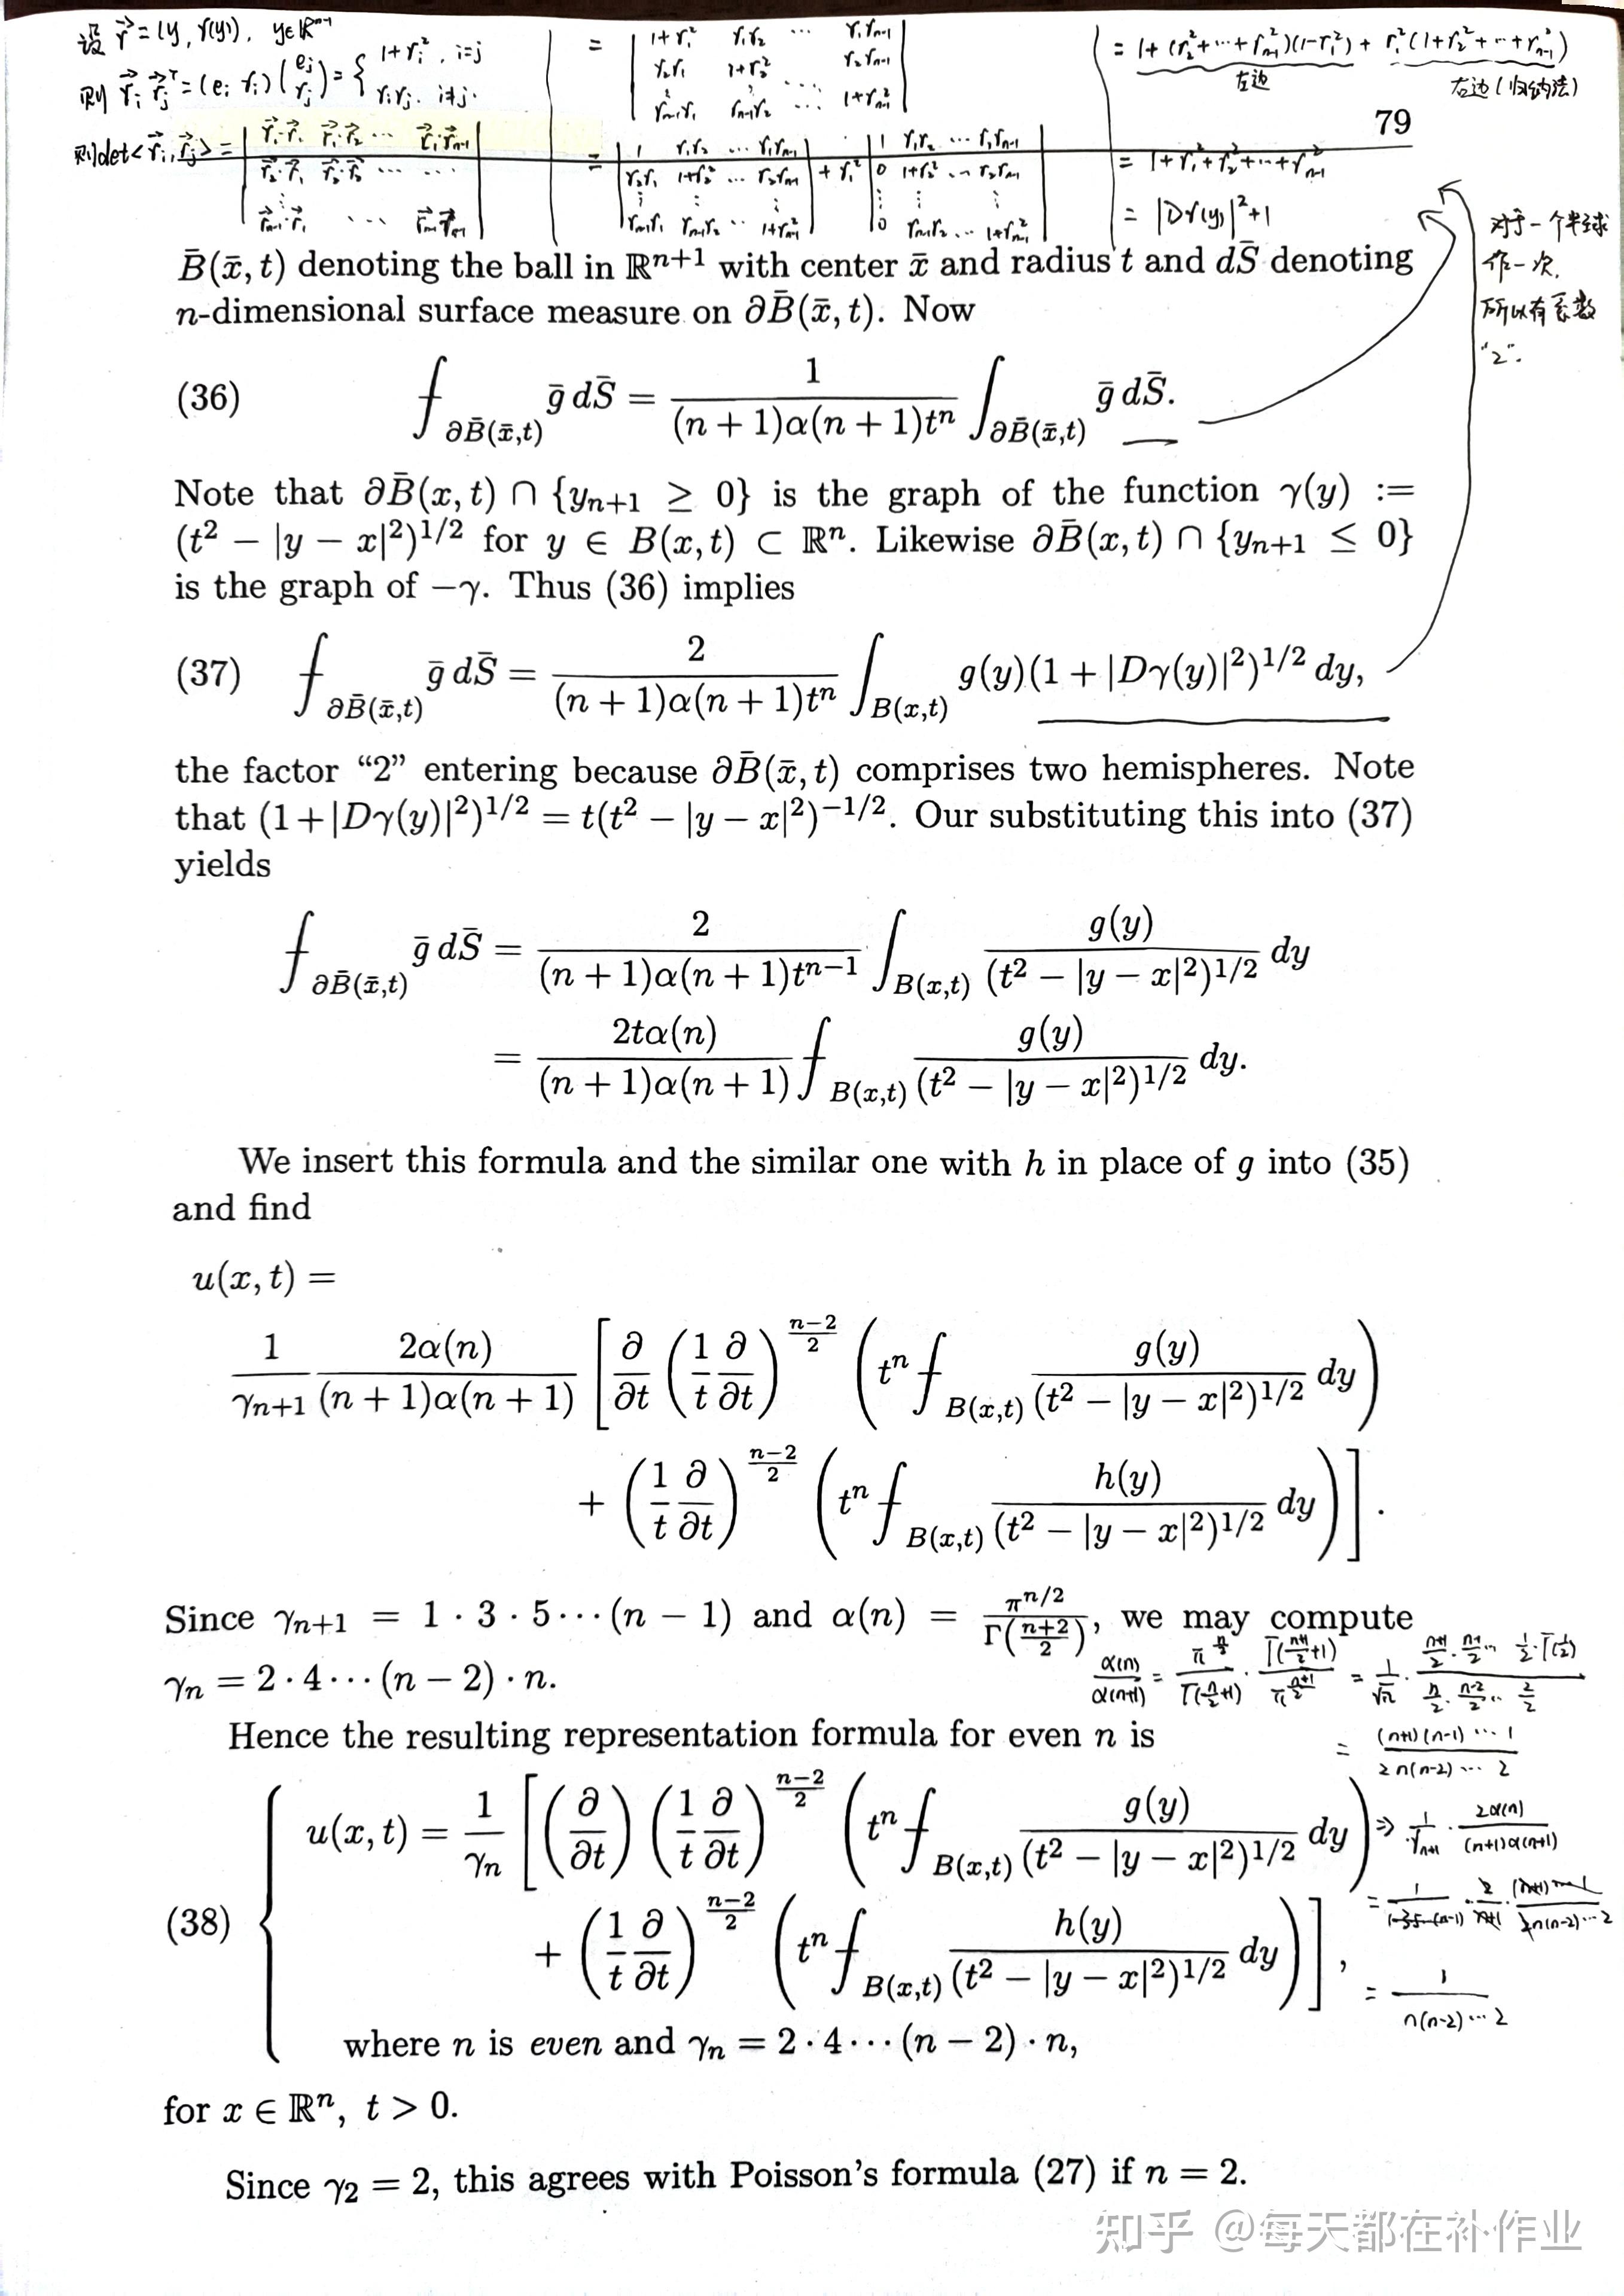 设 r⃗ = (y, γ(y)), y∈ℝⁿ⁻¹
则 r⃗ᵢ r⃗ⱼᵀ = (eᵢ γᵢ)(eⱼ γⱼ) = { 1+γᵢ², i=j
γᵢγⱼ, i≠j.
则 det<r⃗ᵢ, r⃗ⱼ> = | r⃗₁·r⃗₁ r⃗₁·r⃗₂ ⋯ r⃗₁·r⃗ₙ₋₁ |
| r⃗₂·r⃗₁ r⃗₂·r⃗₂ ⋯ ⋯ |
| r⃗ₙ₋₁·r⃗₁ ⋯ r⃗ₙ₋₁·r⃗ₙ₋₁ |
= | 1+γ₁² γ₁γ₂ ⋯ γ₁γₙ₋₁ |
| γ₂γ₁ 1+γ₂² ⋯ γ₂γₙ₋₁ |
| γₙ₋₁γ₁ γₙ₋₁γ₂ ⋯ 1+γₙ₋₁² |
= | 1 γ₁γ₂ ⋯ γ₁γₙ₋₁ | + γ₁² | 1 γ₁γ₂ ⋯ γ₁γₙ₋₁ |
| γ₂γ₁ 1+γ₂² ⋯ γ₂γₙ₋₁ | | 0 1+γ₂² ⋯ γ₂γₙ₋₁ |
| γₙ₋₁γ₁ γₙ₋₁γ₂ ⋯ 1+γₙ₋₁² | | 0 γₙ₋₁γ₂ ⋯ 1+γₙ₋₁² |
= 1+(γ₂²+⋯+γₙ₋₁²)(1-γ₁²) + γ₁²(1+γ₂²+⋯+γₙ₋₁²)
左边 右边(归纳法)
= 1+γ₁²+γ₂²+⋯+γₙ₋₁²
= |Dγ(y)|²+1
79
对于一个半球
作一次,
所以有系数
"2".
B̄(x̄, t) denoting the ball in ℝⁿ⁺¹ with center x̄ and radius t and dS̄ denoting
n-dimensional surface measure on ∂B̄(x̄, t). Now
(36) ⨍_{∂B̄(x̄,t)} ḡ dS̄ = 1/((n + 1)α(n + 1)tⁿ) ∫_{∂B̄(x̄,t)} ḡ dS̄.
Note that ∂B̄(x, t) ∩ {yₙ₊₁ ≥ 0} is the graph of the function γ(y) :=
(t² − |y − x|²)^{1/2} for y ∈ B(x, t) ⊂ ℝⁿ. Likewise ∂B̄(x, t) ∩ {yₙ₊₁ ≤ 0}
is the graph of −γ. Thus (36) implies
(37) ⨍_{∂B̄(x̄,t)} ḡ dS̄ = 2/((n + 1)α(n + 1)tⁿ) ∫_{B(x,t)} g(y)(1 + |Dγ(y)|²)^{1/2} dy,
the factor “2” entering because ∂B̄(x̄, t) comprises two hemispheres. Note
that (1+|Dγ(y)|²)^{1/2} = t(t² − |y − x|²)^{−1/2}. Our substituting this into (37)
yields
⨍_{∂B̄(x̄,t)} ḡ dS̄ = 2/((n + 1)α(n + 1)tⁿ⁻¹) ∫_{B(x,t)} g(y)/(t² − |y − x|²)^{1/2} dy
= 2tα(n)/((n + 1)α(n + 1)) ⨍_{B(x,t)} g(y)/(t² − |y − x|²)^{1/2} dy.
We insert this formula and the similar one with h in place of g into (35)
and find
u(x, t) =
1/γₙ₊₁ 2α(n)/((n + 1)α(n + 1)) [∂/∂t (1/t ∂/∂t)^{(n−2)/2} (tⁿ ⨍_{B(x,t)} g(y)/(t² − |y − x|²)^{1/2} dy)
+ (1/t ∂/∂t)^{(n−2)/2} (tⁿ ⨍_{B(x,t)} h(y)/(t² − |y − x|²)^{1/2} dy)].
Since γₙ₊₁ = 1 · 3 · 5 ⋯ (n − 1) and α(n) = π^{n/2}/Γ((n+2)/2), we may compute
γₙ = 2 · 4 ⋯ (n − 2) · n.
α(n)/α(n+1) = π^{n/2}/Γ(n/2+1) · Γ((n+1)/2+1)/π^{(n+1)/2} = 1/√π · ((n+1)/2 · (n-1)/2 ⋯ 1/2 · Γ(1/2))/(n/2 · (n-2)/2 ⋯ 2/2)
= ((n+1)(n-1)⋯1)/(2n(n-2)⋯2)
Hence the resulting representation formula for even n is
(38) { u(x, t) = 1/γₙ [(∂/∂t) (1/t ∂/∂t)^{(n−2)/2} (tⁿ ⨍_{B(x,t)} g(y)/(t² − |y − x|²)^{1/2} dy)
+ (1/t ∂/∂t)^{(n−2)/2} (tⁿ ⨍_{B(x,t)} h(y)/(t² − |y − x|²)^{1/2} dy)],
where n is even and γₙ = 2 · 4 ⋯ (n − 2) · n,
⇒ 1/γₙ₊₁ · 2α(n)/((n+1)α(n+1))
= 1/(1·3·5⋯(n-1)) · 2/(n+1) · ((n+1)⋯1)/(2n(n-2)⋯2)
= 1/(n(n-2)⋯2)
for x ∈ ℝⁿ, t > 0.
Since γ₂ = 2, this agrees with Poisson’s formula (27) if n = 2.
知乎 @每天都在补作业